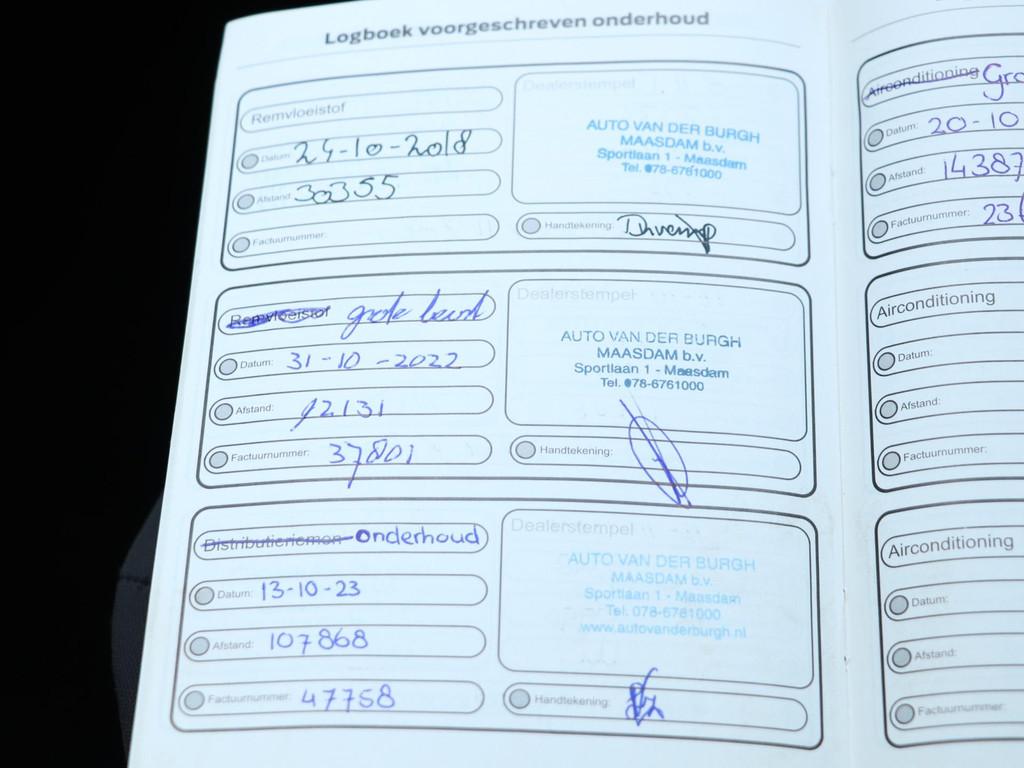 Logboek voorgeschreven onderhoud
Remvloeistof
Datum: 24-10-2018
Afstand: 30355
Factuurnummer:
Dealerstempel
AUTO VAN DER BURGH
MAASDAM b.v.
Sportlaan 1 - Maasdam
Tel. 078-6761000
Handtekening:
Remvloeistof grote beurt
Datum: 31-10-2022
Afstand: 92131
Factuurnummer: 37801
Dealerstempel
AUTO VAN DER BURGH
MAASDAM b.v.
Sportlaan 1 - Maasdam
Tel. 078-6761000
Handtekening:
Distributieriemen - onderhoud
Datum: 13-10-23
Afstand: 107868
Factuurnummer: 47758
Dealerstempel
AUTO VAN DER BURGH
MAASDAM b.v.
Sportlaan 1 - Maasdam
Tel. 078-6761000
www.autovanderburgh.nl
Handtekening:
Airconditioning Gro
Datum: 20-10
Afstand: 14387
Factuurnummer: 236
Airconditioning
Datum:
Afstand:
Factuurnummer:
Airconditioning
Datum:
Afstand:
Factuurnummer: